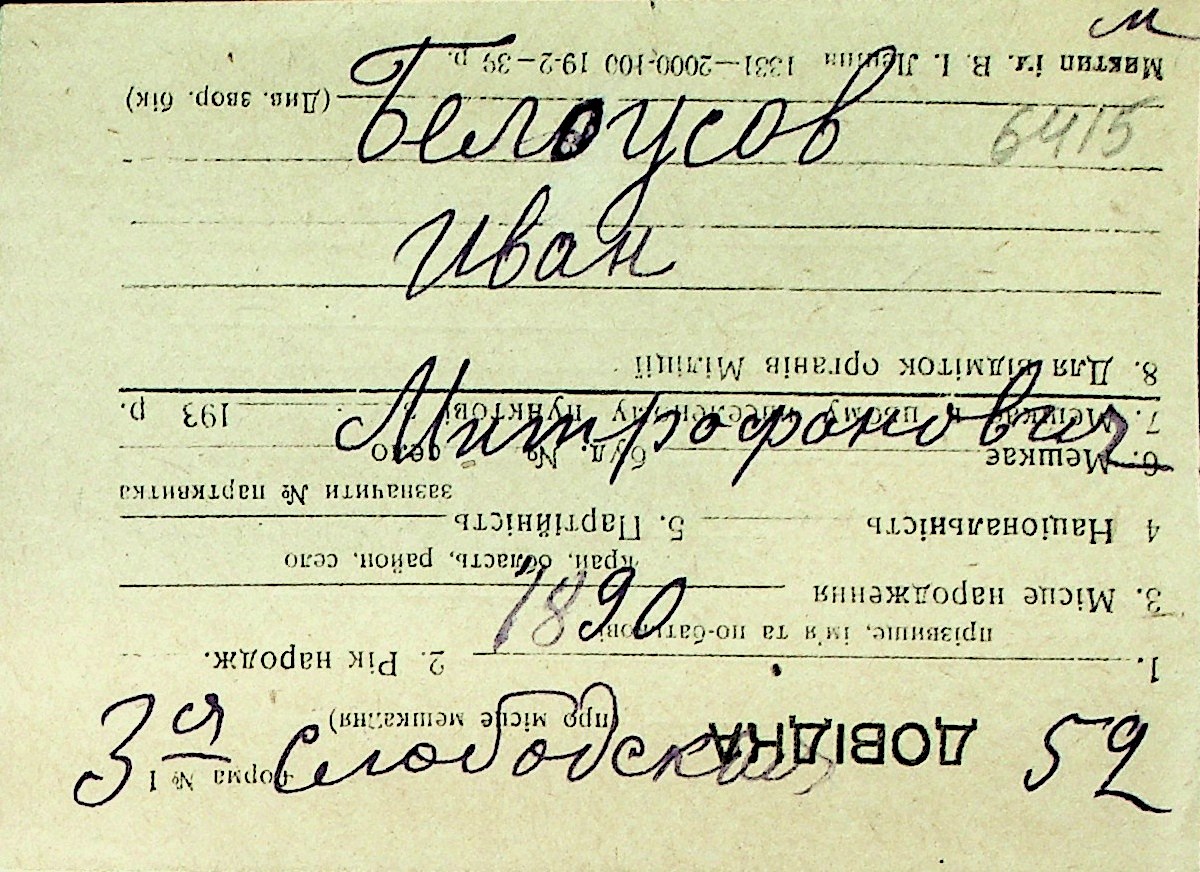 м
Белоусов
6415
Иван
Митрофанович
1890
3я Слободская 52
Форма № 1
ДОВІДКА
(про місце мешкання)
1.
прізвище, ім'я та по-батькові
2. Рік народж.
3. Місце народження
край, область, район, село
4 Національність
5. Партійність
зазначити № партквитка
6. Мешкає
буд. №
село
7. Мешкає в цьому населеному пунктові з
193 р.
8. Для відміток органів Міліції
(Див. звор. бік)
Миктип ім. В. І. Леніна 1331—2000×100 19-2-39 р.